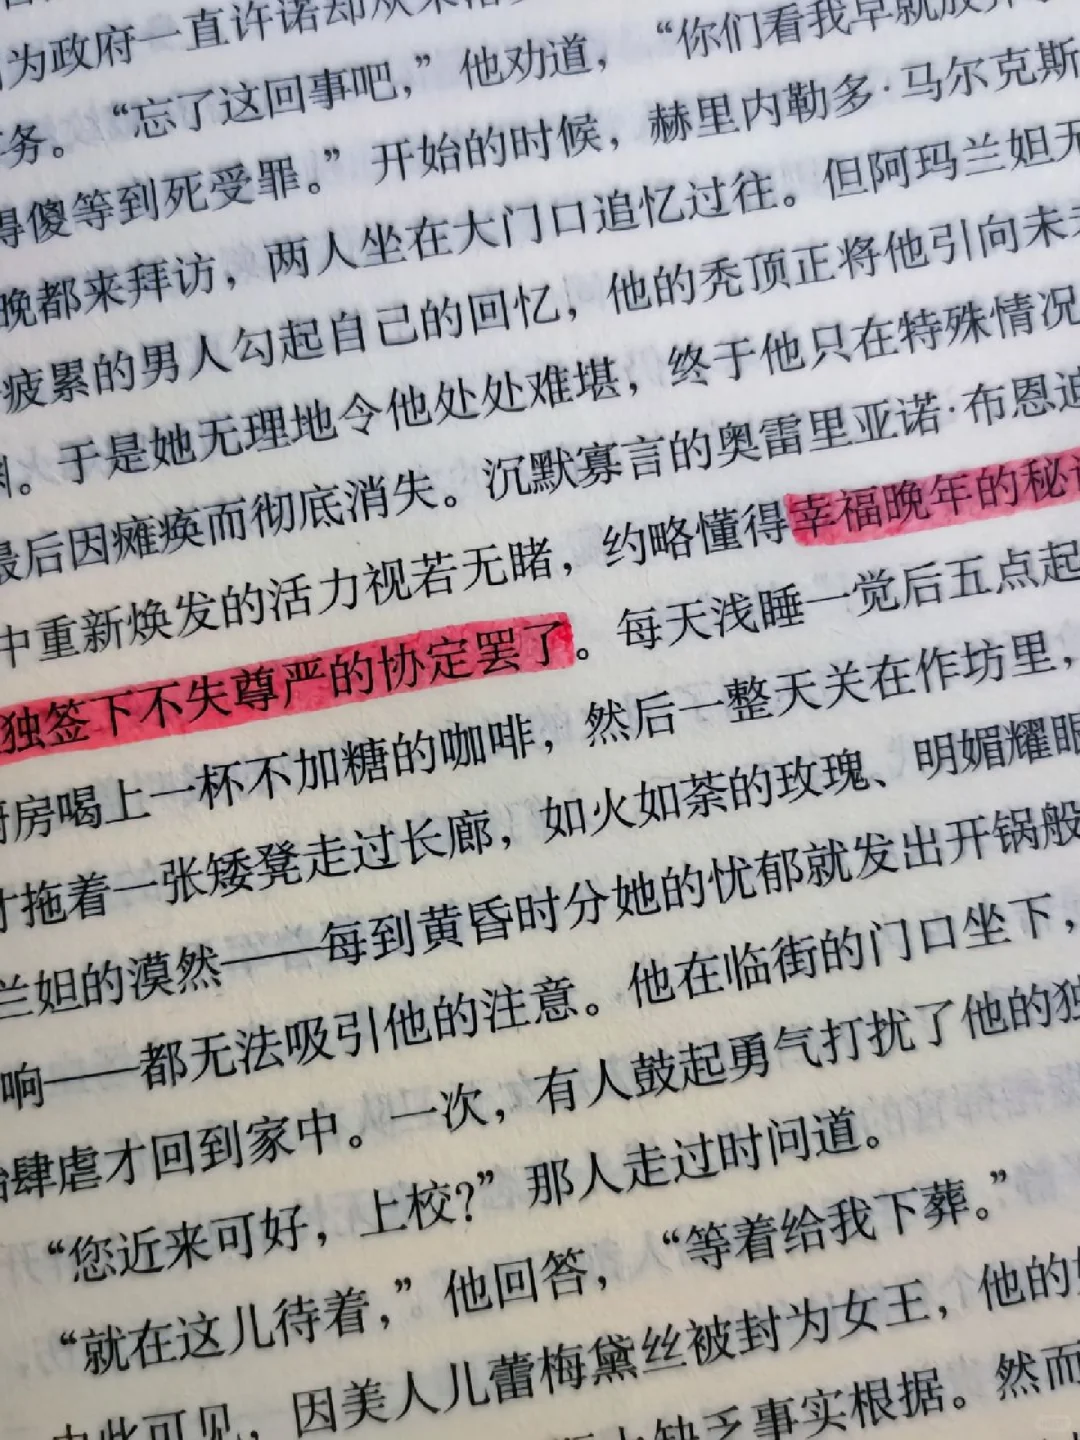 为政府一直许诺却从来
务。“忘了这回事吧，”他劝道，“你们看我早就放弃
得傻等到死受罪。”开始的时候，赫里内勒多·马尔克斯
晚都来拜访，两人坐在大门口追忆过往。但阿玛兰妲无
疲累的男人勾起自己的回忆，他的秃顶正将他引向未
。于是她无理地令他处处难堪，终于他只在特殊情况
最后因瘫痪而彻底消失。沉默寡言的奥雷里亚诺·布恩迪
中重新焕发的活力视若无睹，约略懂得幸福晚年的秘
独签下不失尊严的协定罢了。每天浅睡一觉后五点起
厨房喝上一杯不加糖的咖啡，然后一整天关在作坊里，
才拖着一张矮凳走过长廊，如火如荼的玫瑰、明媚耀眼
兰妲的漠然——每到黄昏时分她的忧郁就发出开锅般
响——都无法吸引他的注意。他在临街的门口坐下，
肆虐才回到家中。一次，有人鼓起勇气打扰了他的独
“您近来可好，上校？”那人走过时问道。
“就在这儿待着，”他回答，“等着给我下葬。”
由此可见，因美人儿蕾梅黛丝被封为女王，他的
缺乏事实根据。然而